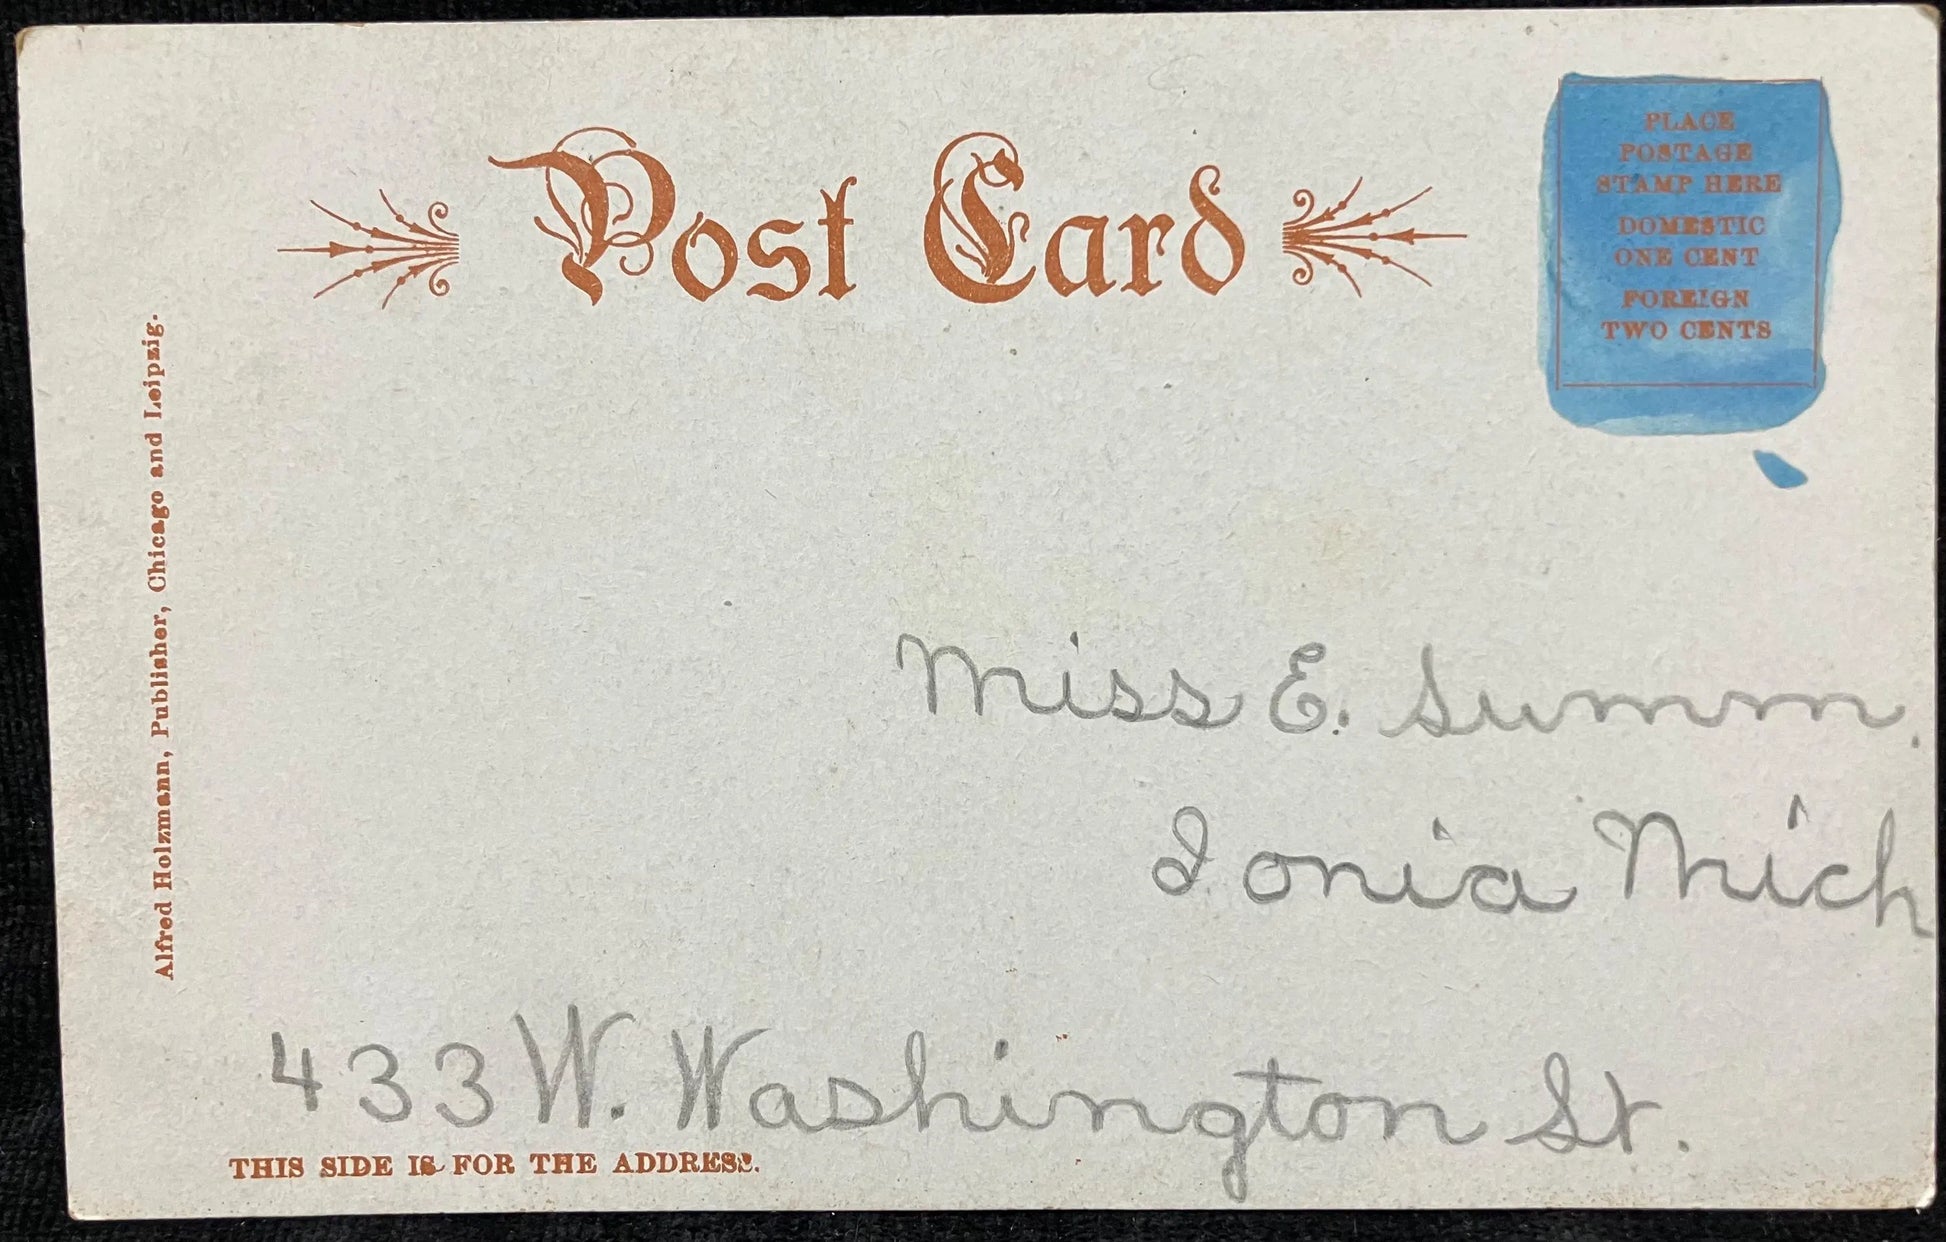 Post Card
PLACE
POSTAGE
STAMP HERE
DOMESTIC
ONE CENT
FOREIGN
TWO CENTS
Alfred Holzmann, Publisher, Chicago and Leipzig.
Miss E. Summ.
Ionia Mich
433 W. Washington St.
THIS SIDE IS FOR THE ADDRESS.